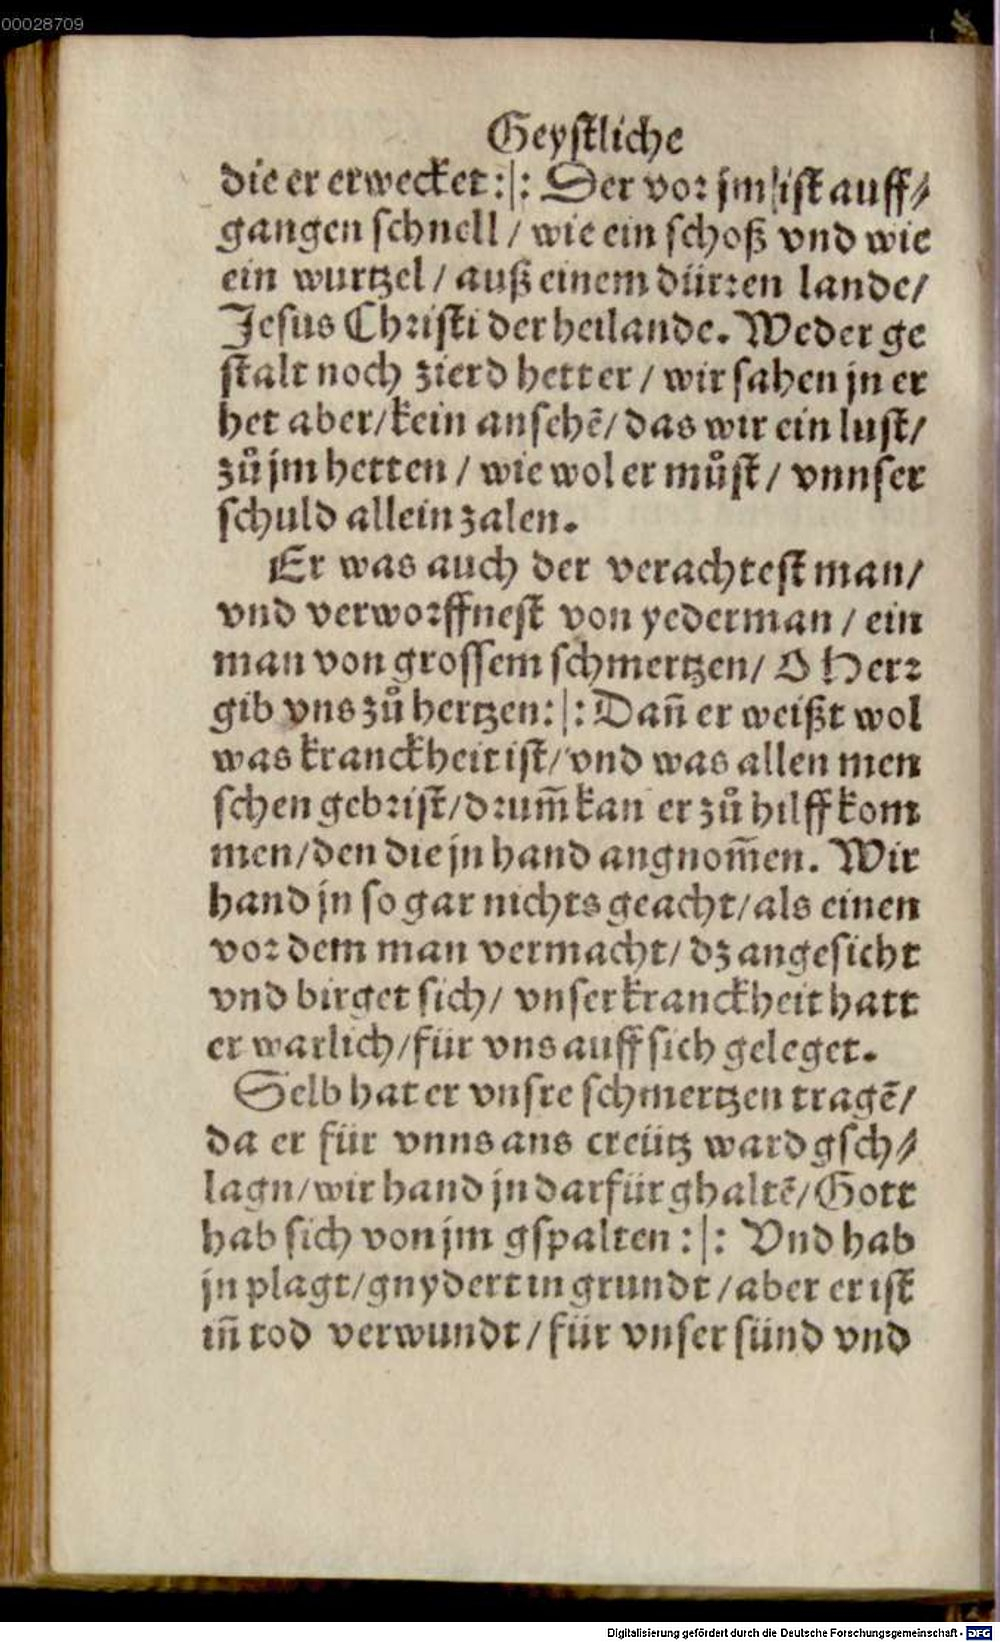 00028709
Geystliche
die er erwecket :|: Der vor jm ist auff⸗
gangen schnell / wie ein schoß vnd wie
ein wurtzel / auß einem dürren lande/
Jesus Christi der heilande. Weder ge
stalt noch zierd hett er / wir sahen jn er
het aber/kein ansehē/ das wir ein lust/
zů jm hetten / wie wol er můst / vnnser
schuld allein zalen.
Er was auch der verachtest man/
vnd verworffnest von yederman / ein
man von grossem schmertzen/ O Herr
gib vns zů hertzen :|: Dañ er weißt wol
was kranckheit ist/ vnd was allen men
schen gebrist/drum̄ kan er zů hilff kom
men/den die jn hand angnom̄en. Wir
hand jn so gar nichts geacht/als einen
vor dem man vermacht/ dz angesicht
vnd birget sich/ vnser kranckheit hatt
er warlich/für vns auff sich geleget.
Selb hat er vnsre schmertzen tragē/
da er für vnns ans creütz ward gsch⸗
lagn/wir hand jn darfür ghaltē/Gott
hab sich von jm gspalten :|: Vnd hab
jn plagt/gnydert in grundt / aber er ist
iñ tod verwundt / für vnser sünd vnd
Digitalisierung gefördert durch die Deutsche Forschungsgemeinschaft - DFG